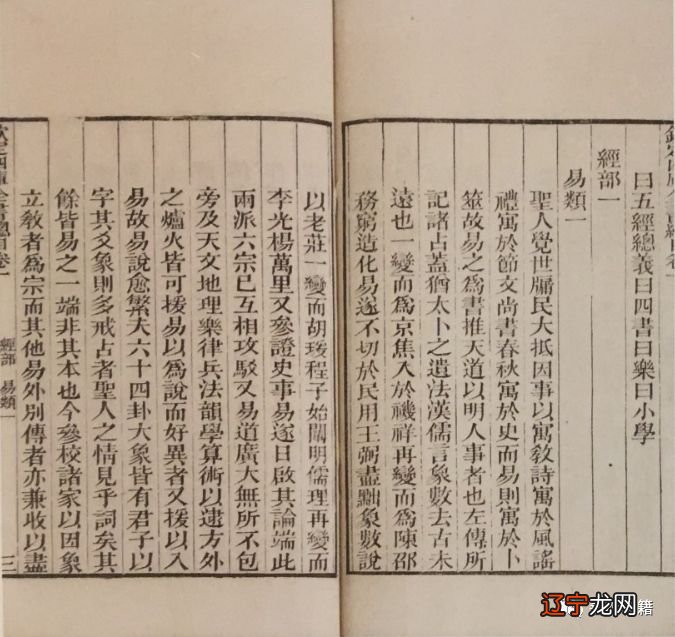 曰五經總義曰四書曰樂曰小學
經部一
易類一
聖人覺世牖民大抵因事以寓敎詩寓於風謠
禮寓於節文尚書春秋寓於史而易則寓於卜
筮故易之爲書推天道以明人事者也左傳所
記諸占蓋猶太卜之遺法漢儒言象數去古未
遠也一變而爲京焦入於禨祥再變而爲陳邵
務窮造化易遂不切於民用王弼盡黜象數說
以老莊一變而胡瑗程子始闡明儒理再變而
李光楊萬里又參證史事易遂日啟其論端此
兩派六宗已互相攻駁又易道廣大無所不包
旁及天文地理樂律兵法韻學算術以逮方外
之爐火皆可援易以爲說而好異者又援以入
易故易說愈繁夫六十四卦大象皆有君子以
字其爻象則多戒占者聖人之情見乎詞矣其
餘皆易之一端非其本也今參校諸家以因象
立敎者爲宗而其他易外別傳者亦兼收以盡
經部 易類一
三
辽宁龙网籍